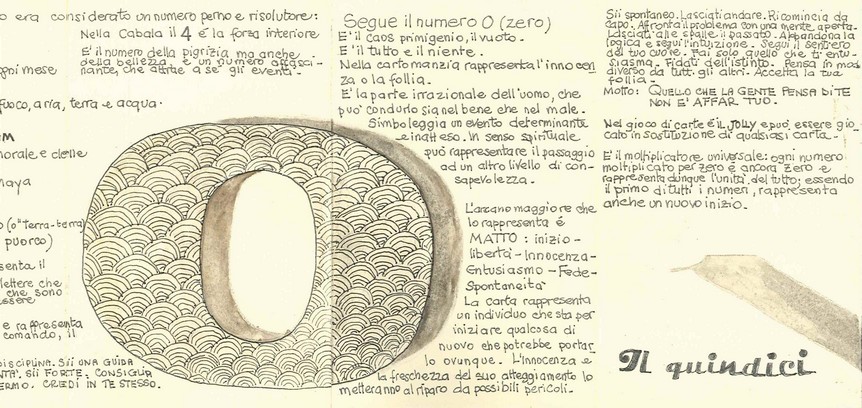 o era considerato un numero perno e risolutore:
Nella Cabala il 4 é la forza interiore
E' il numero della pigrizia ma anche
della bellezza, è un numero affasci-
nante, che attrae a sé gli eventi.
ogni mese
fuoco, aria, terra e acqua.
morale e delle
maya
(o "terra-terra)
PUORCO)
senta il
lettere che
che sono
essere
e rappresenta
comando, il
DISCIPLINA. SII UNA GUIDA
SII FORTE. CONSIGLIA
FERMO. CREDI IN TE STESSO.
Segue il numero 0 (zero)
E' il caos primigenio, il vuoto.
E' il tutto e il niente.
Nella cartomanzia rappresenta l'innocen
za o la follia.
E' la parte irrazionale dell'uomo, che
puo' condurlo sia nel bene che nel male.
Simboleggia un evento determinante
e inatteso. In senso spirituale
può rappresentare il passaggio
ad un altro livello di con-
sapevolezza.
L'arcano maggiore che
lo rappresenta é
MATTO: inizio-
libertà-Innocenza-
Entusiasmo-Fede-
Spontaneita'
La carta rappresenta
un individuo che sta per
iniziare qualcosa di
nuovo che potrebbe portar
lo ovunque. L'innocenza e
la freschezza del suo atteggiamento lo
metteranno al riparo da possibili pericoli.
Sii spontaneo. Lasciati andare. Ricomincia da
capo. Affronta il problema con una mente aperta.
Lasciati alle spalle il passato. Abbandona la
logica e segui l'intuizione. Segui il sentiero
del tuo cuore. Fai solo quello che ti entu-
siasma. Fidati dell'istinto. Pensa in mod
diverso da tutti gli altri. Accetta la tua
follia.
Motto: QUELLO CHE LA GENTE PENSA DI TE
NON E' AFFAR TUO.
Nel gioco di carte é IL JOLLY e può essere gio-
cato in sostituzione di qualsiasi carta.
E' il moltiplicatore universale: ogni numero
moltiplicato per zero é ancora zero e
rappresenta dunque l'unità del tutto; essendo
il primo di tutti i numeri, rappresenta
anche un nuovo inizio.
Il quindici